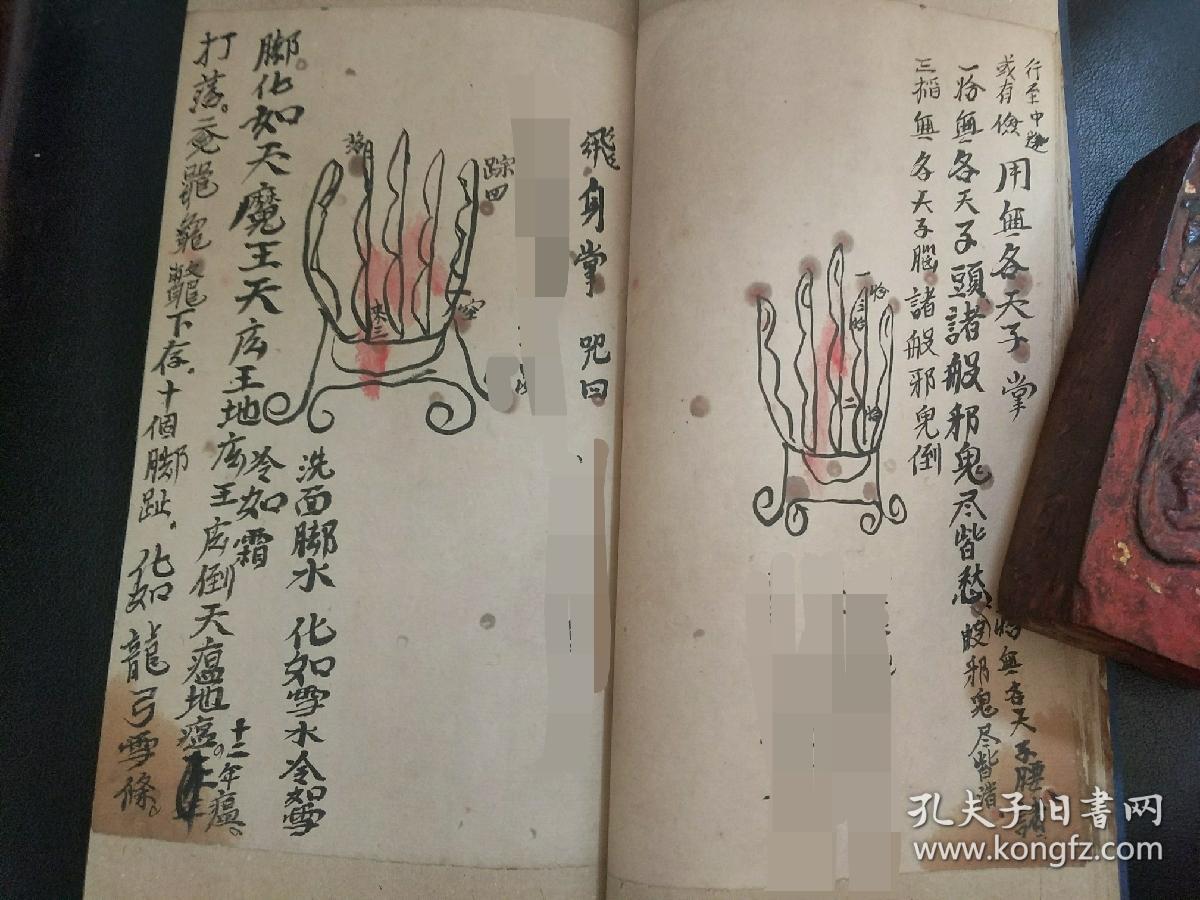 行至中
或有
用無各天子掌
一將無各天子頭諸般邪鬼尽皆愁
將無各天子腰諸
般邪鬼尽皆諧
三搯無各天子腦諸般邪鬼倒
一將
三將
二
將
飛身掌 咒曰
踪四
來三
洗面腳水 化如雪水冷如雪
冷如霜
腳化如天魔王天庄王地庄王庄倒天瘟地瘟
十二年瘟。
打落。下存。十個腳趾。化如龍弓雪條。
孔夫子旧书网
www.kongfz.com